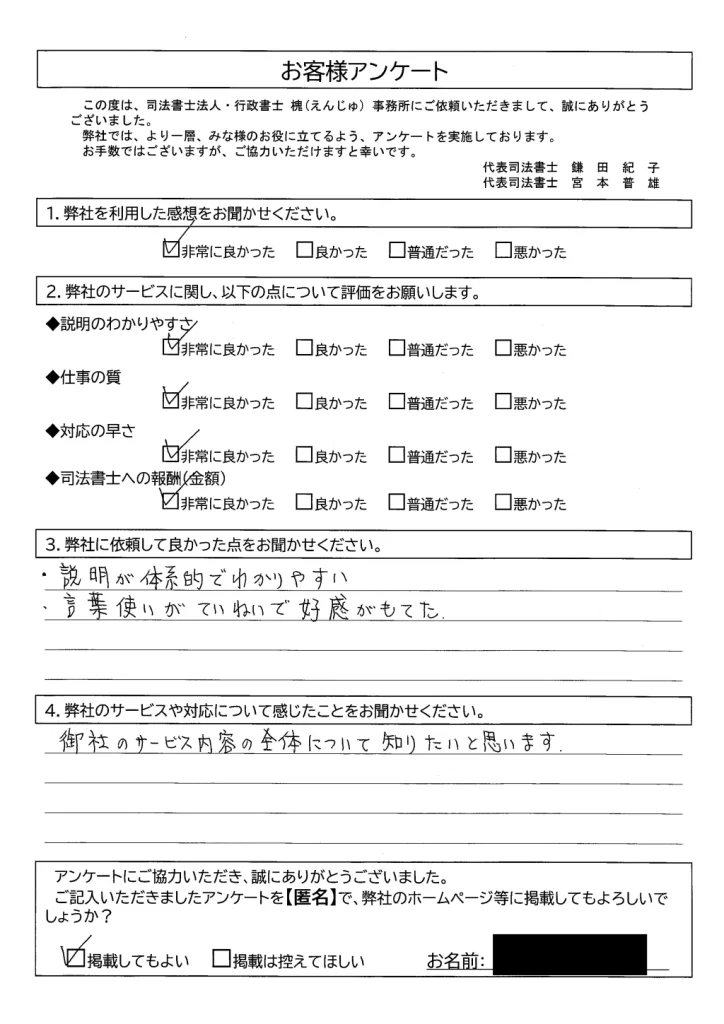 お客様アンケート
この度は、司法書士法人・行政書士 槐(えんじゅ) 事務所にご依頼いただきまして、誠にありがとう
ございました。
弊社では、より一層、みな様のお役に立てるよう、アンケートを実施しております。
お手数ではございますが、ご協力いただけますと幸いです。
代表司法書士 鎌 田 紀 子
代表司法書士 宮 本 普 雄
1. 弊社を利用した感想をお聞かせください。
☑非常に良かった □良かった □普通だった □悪かった
2. 弊社のサービスに関し、以下の点について評価をお願いします。
◆説明のわかりやすさ
☑非常に良かった □良かった □普通だった □悪かった
◆仕事の質
☑非常に良かった □良かった □普通だった □悪かった
◆対応の早さ
☑非常に良かった □良かった □普通だった □悪かった
◆司法書士への報酬(金額)
☑非常に良かった □良かった □普通だった □悪かった
3. 弊社に依頼して良かった点をお聞かせください。
・説明が体系的でわかりやすい
・言葉使いがていねいで好感がもてた.
4. 弊社のサービスや対応について感じたことをお聞かせください。
御社のサービス内容の全体について知りたいと思います.
アンケートにご協力いただき、誠にありがとうございました。
ご記入いただきましたアンケートを【匿名】で、弊社のホームページ等に掲載してもよろしいで
しょうか?
☑掲載してもよい □掲載は控えてほしい お名前: